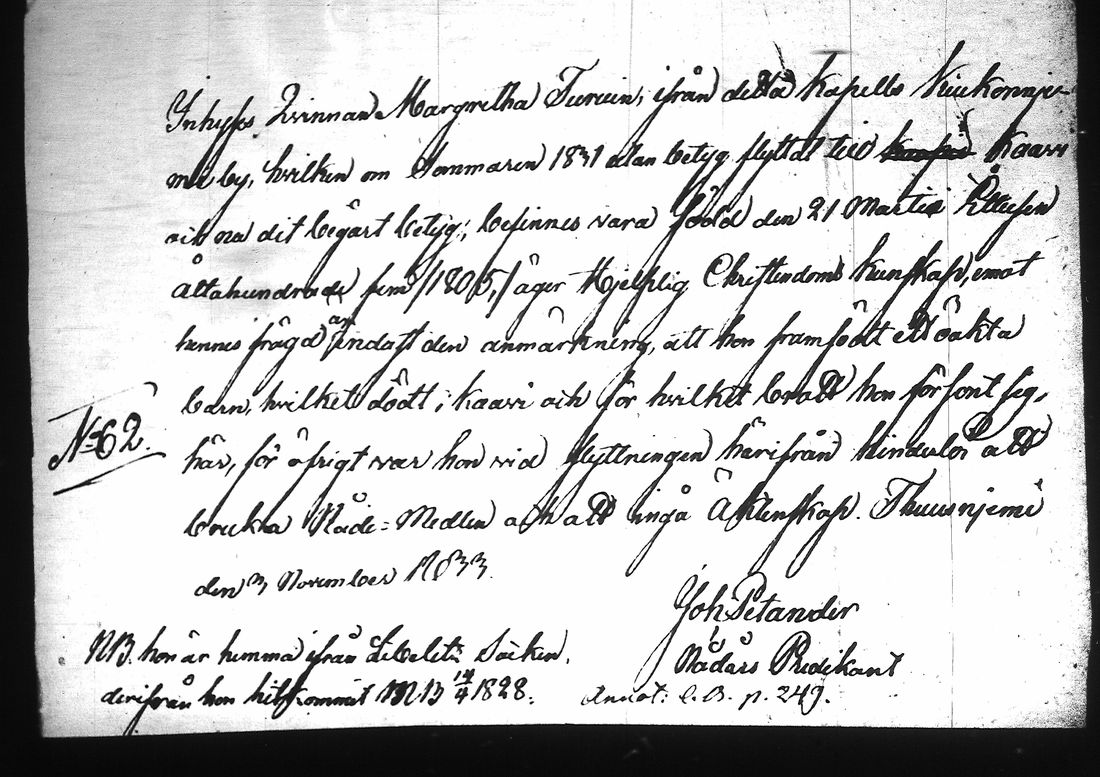 Inhyses Qvinnan Margretha Turuin, ifrån detta Kapells Kiukonnje-
mi by, hvilken om Sommaren 1831 utan betyg flyttat till Kaavi
och nu dit begärt betyg; befinnes vara född den 21 Martii
Åttahundrade fem /1805,/ äger Hjelplig Christendoms Kunskap, emot
hennes frägd är endast den anmärkning, att hon framfödt ett oäkta
barn, hvilket dödt i Kaavi och för hvilket brått hon försont sig,
här, för öfrigt var hon vid flyttningen härifrån hinderlös att
N:o 62.
bruka Nåde-Medlen och att ingå Äktenskap. Thuusnjemi
den 3 November 1833.
Joh: Petander
Nådårs Predikant
NB. hon är hemma ifrån Libelitz Socken,
derifrån hon hitkommit 14/4 1828.
Annot: C. B. p. 249.